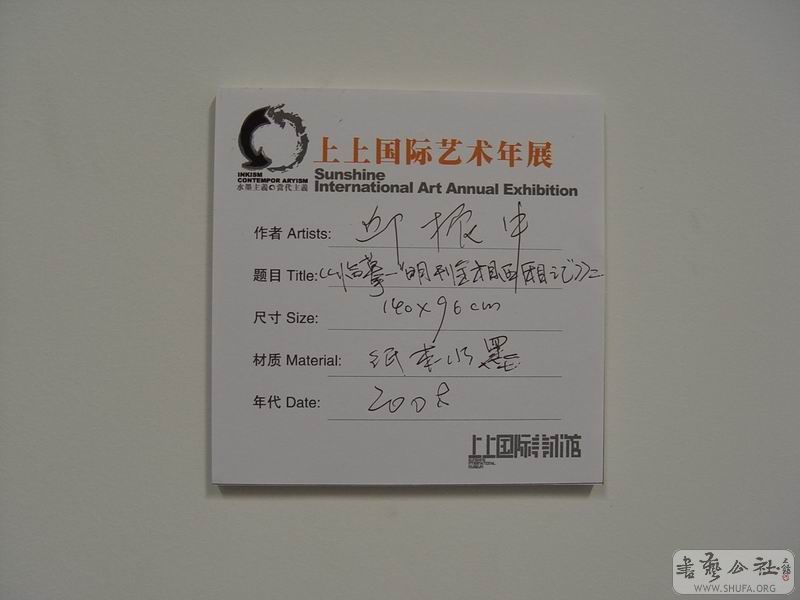 上上国际艺术年展
Sunshine
International Art Annual Exhibition
INKISM
CONTEMPOR ARYISM
水墨主義 當代主義
作者 Artists: 邱振中
题目 Title: 《临摹——明刊全相西厢记》二
尺寸 Size: 140×96cm
材质 Material: 纸本水墨
年代 Date: 200
上上国际美术馆
書藝公社
WWW.SHUFA.ORG